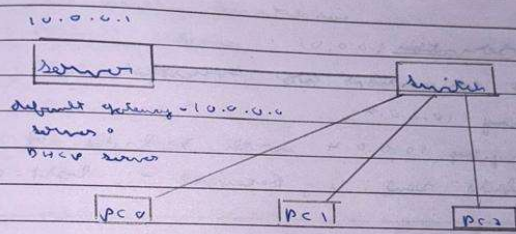 10.0.0.1
server
switch
default gateway - 10.0.0.0
server 0
DHCP server
PC 0
PC 1
PC 2